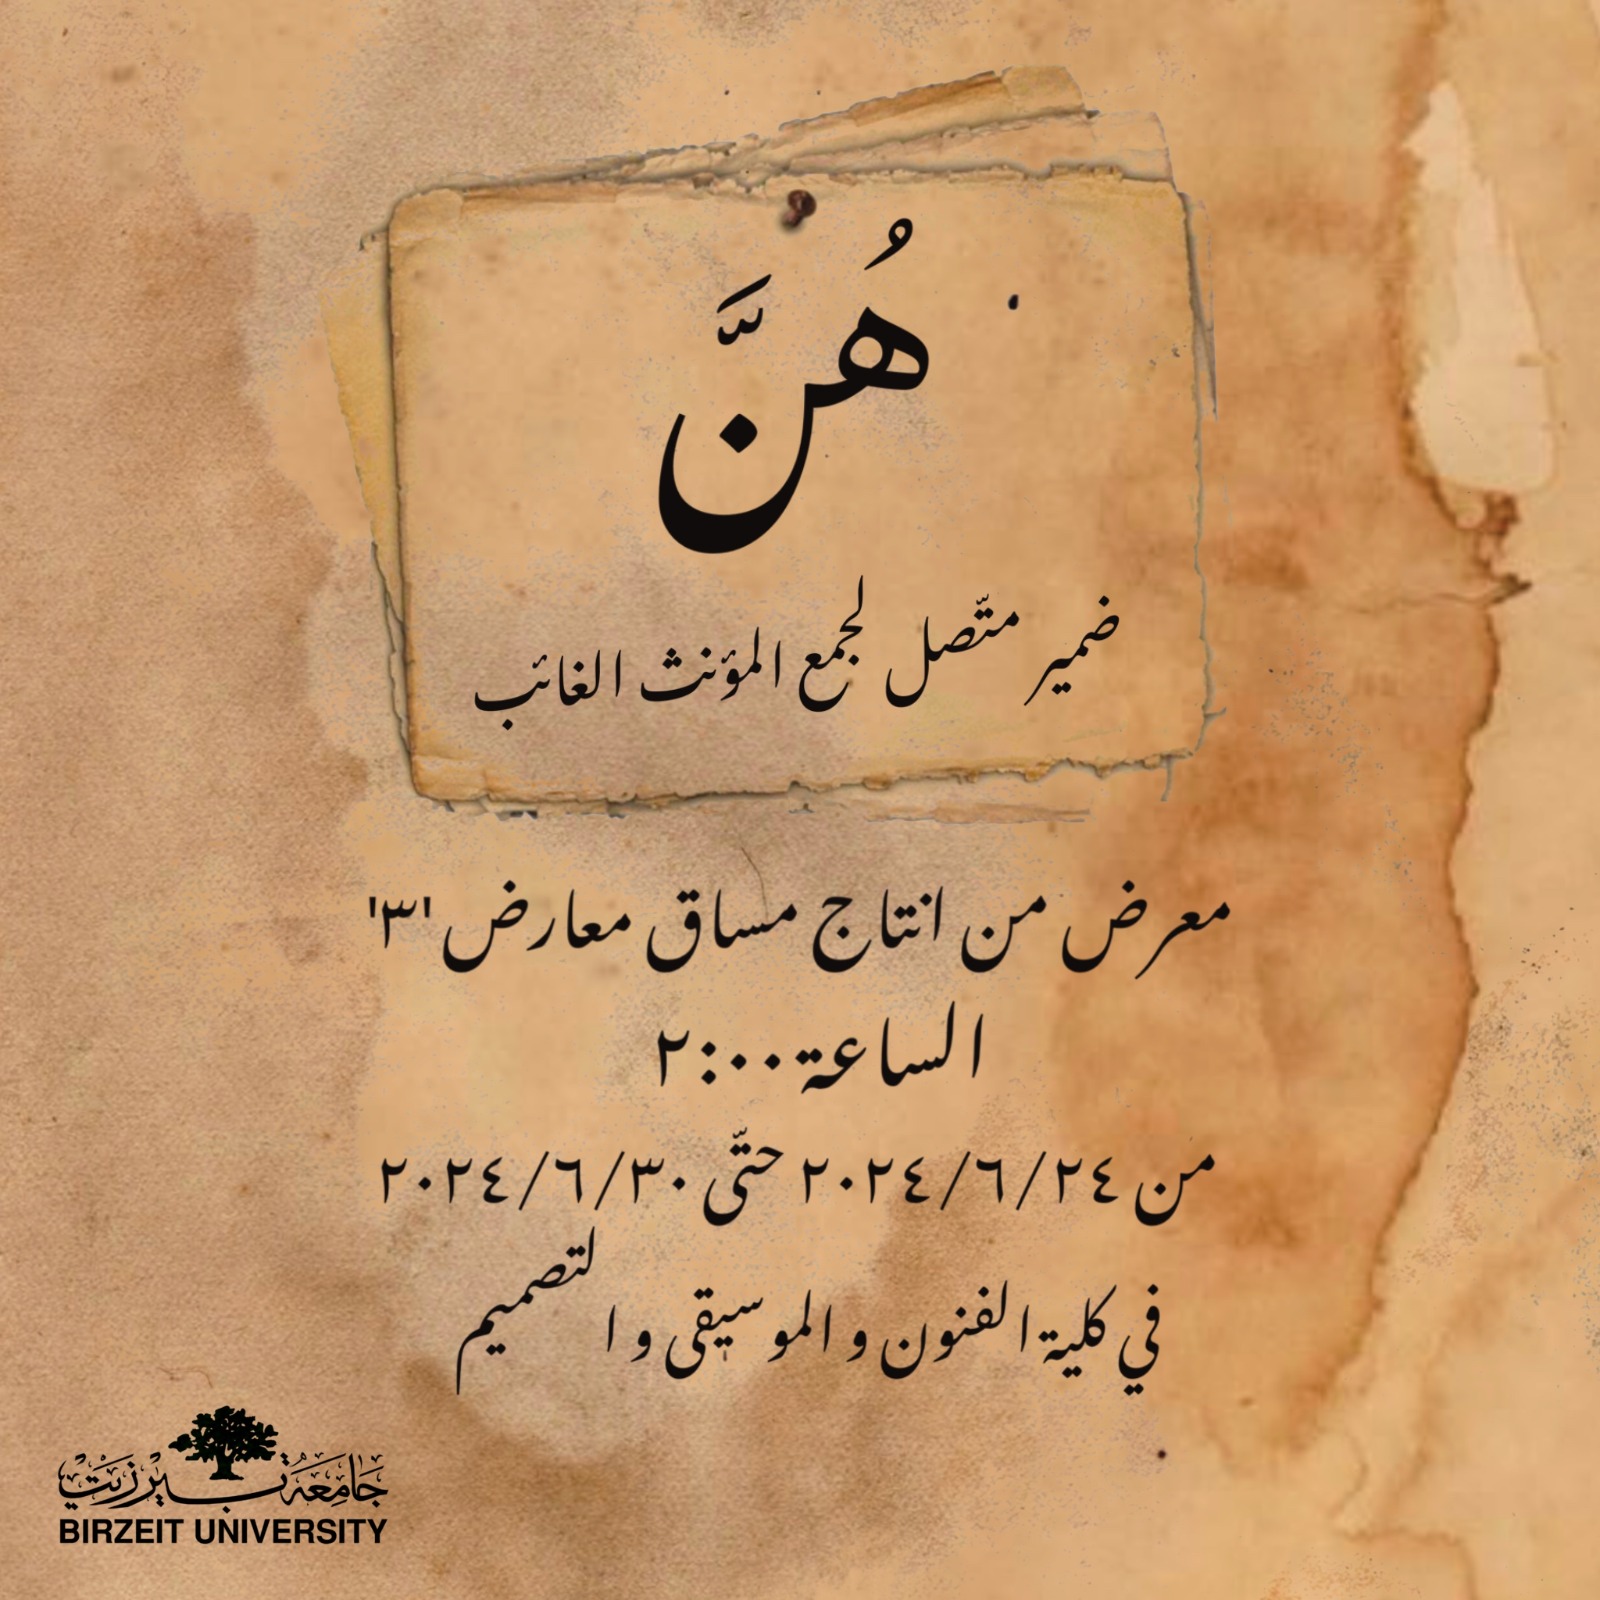 هُنَّ
ضمير متّصل لجمع المؤنث الغائب
معرض من انتاج مساق معارض '٣'
الساعة ٢:٠٠
من ٢٠٢٤/٦/٢٤ حتّى ٢٠٢٤/٦/٣٠
في كلية الفنون و الموسيقى و التصميم
جامعة بيرزيت
BIRZEIT UNIVERSITY